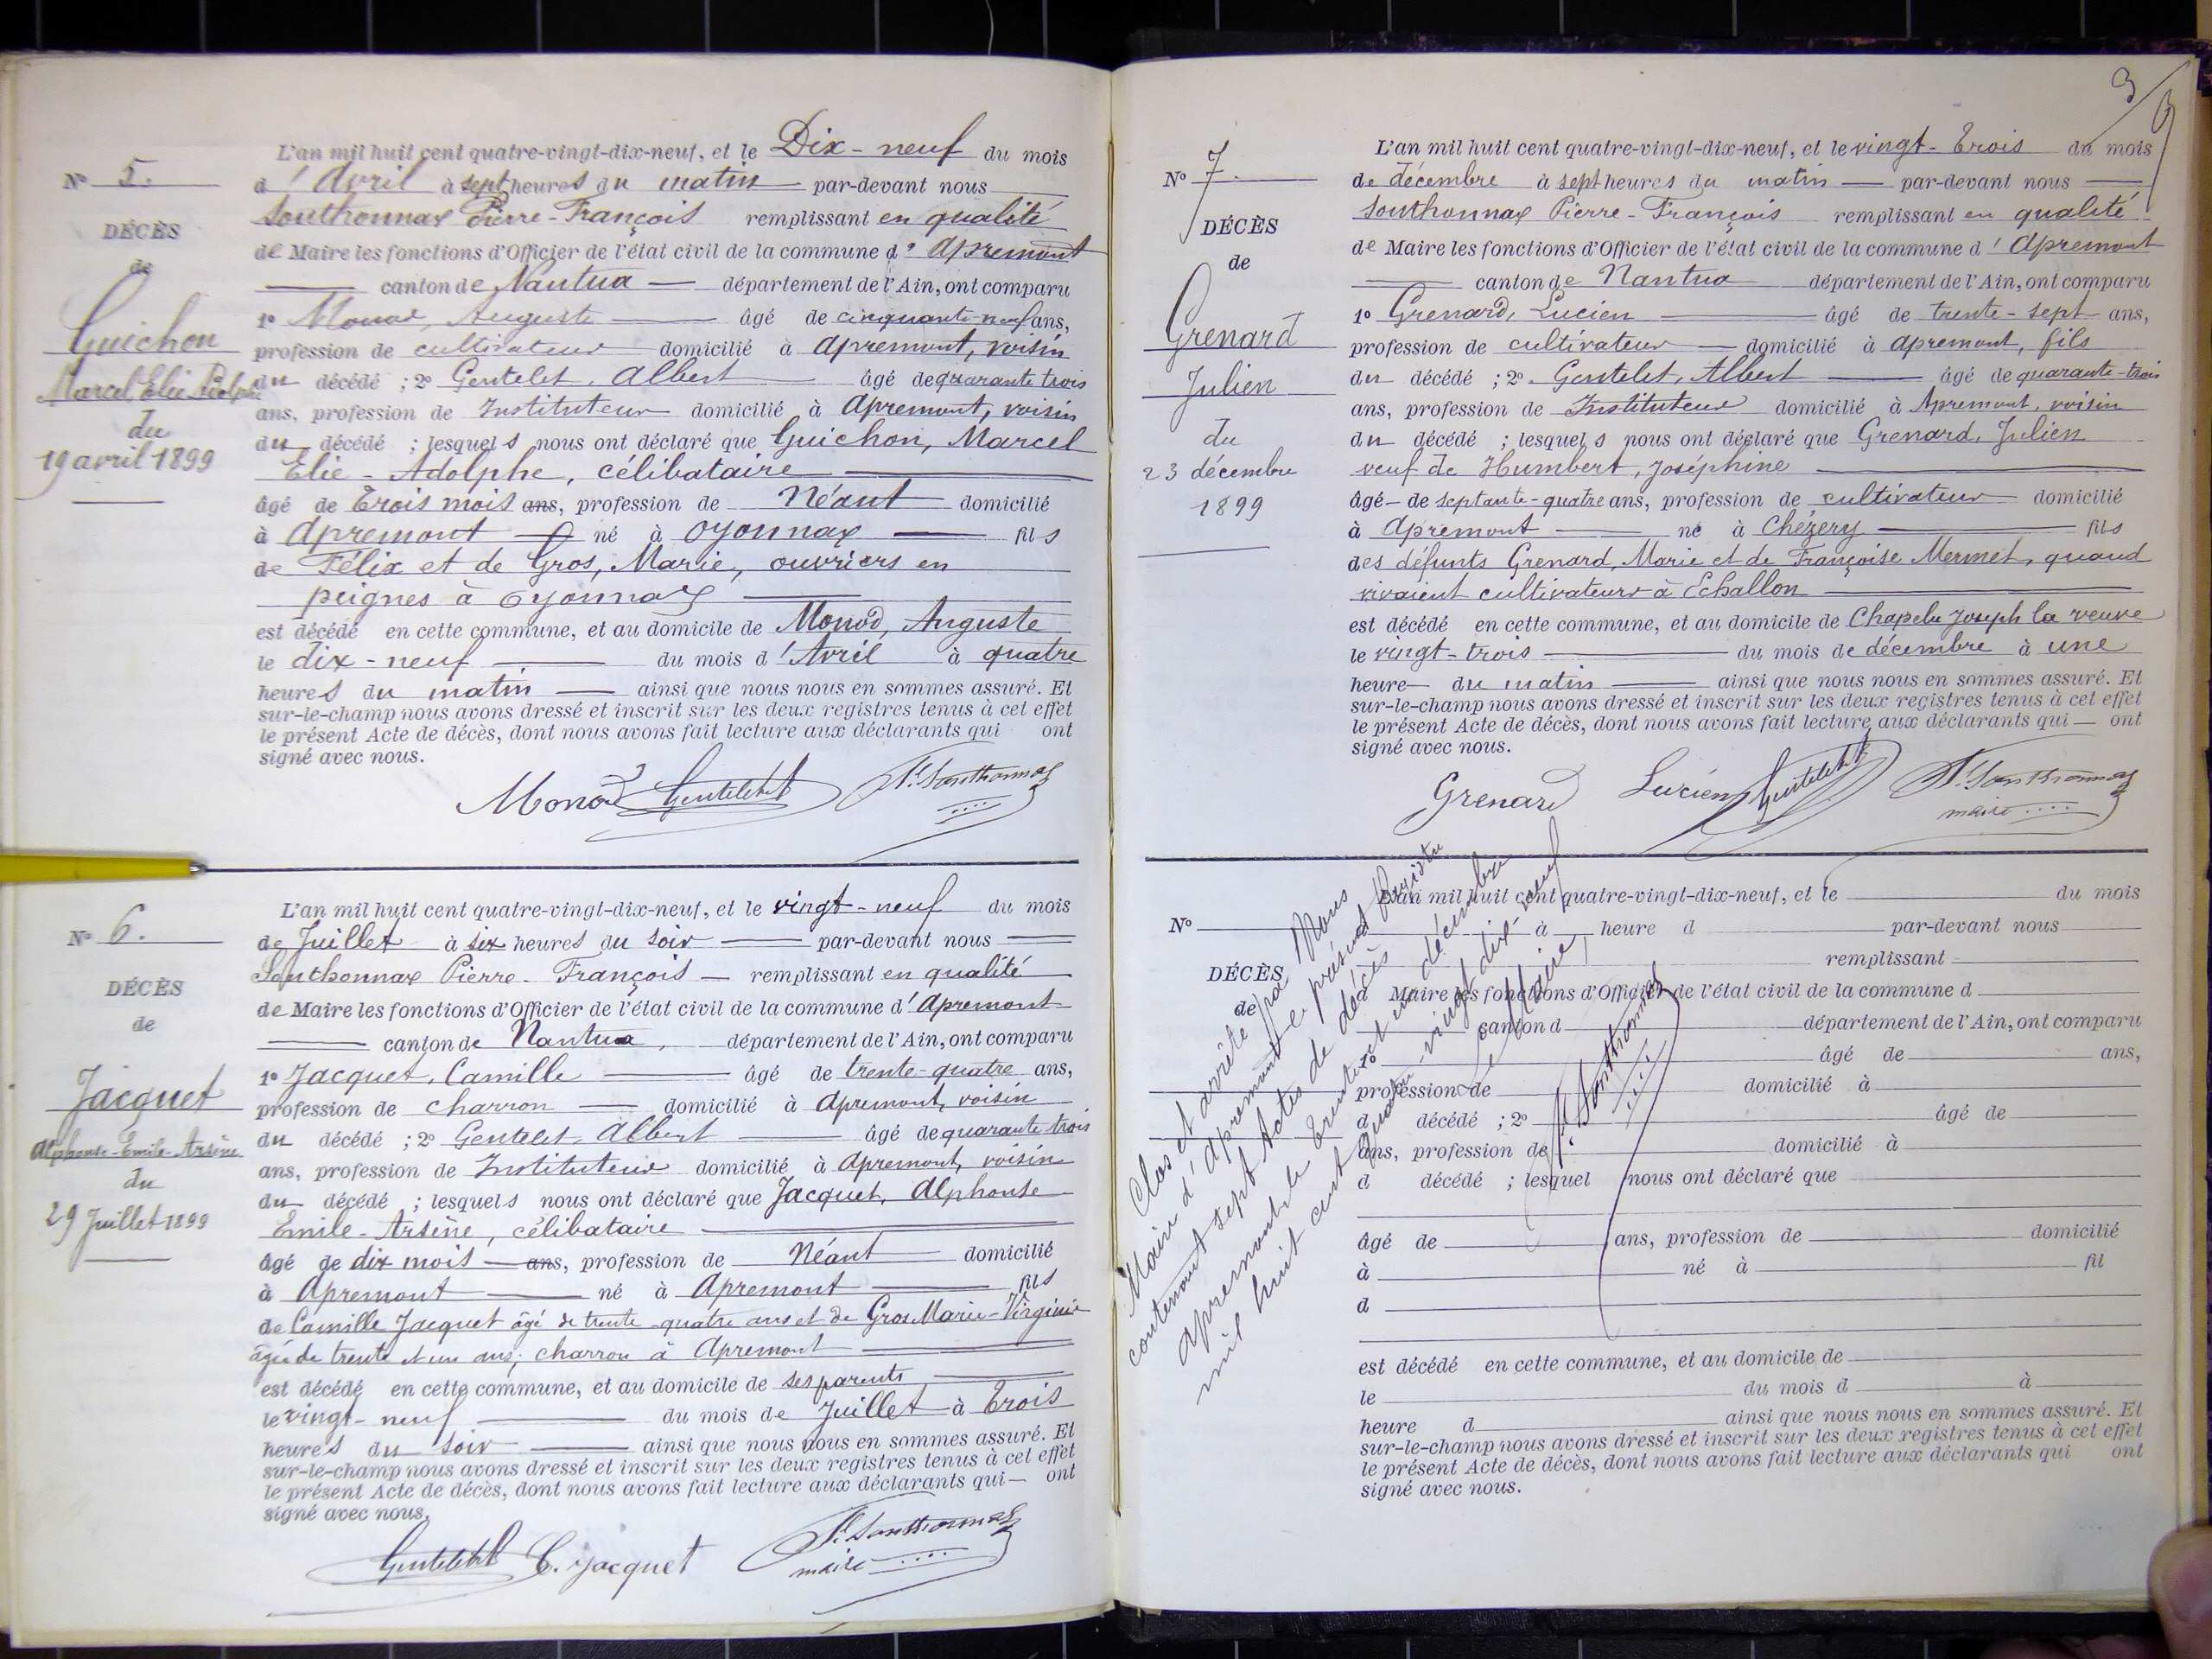 N° 5.
DÉCÈS
de
Guichon
Marcel Elie Adolphe
du
19 avril 1899
L'an mil huit cent quatre-vingt-dix-neuf, et le Dix-neuf du mois
d'Avril à sept heures du matin par-devant nous
Southonnax Pierre-François remplissant en qualité
de Maire les fonctions d'Officier de l'état civil de la commune d'Apremont
canton de Nantua département de l'Ain, ont comparu
1° Monod, Auguste âgé de cinquante-neuf ans,
profession de cultivateur domicilié à Apremont, voisin
du décédé ; 2° Gentelet, Albert âgé de quarante trois
ans, profession de Instituteur domicilié à Apremont, voisin
du décédé ; lesquels nous ont déclaré que Guichon, Marcel
Elie-Adolphe, célibataire
âgé de Trois mois ans, profession de Néant domicilié
à Apremont né à Oyonnax fils
de Félix et de Gros, Marie, ouvriers en
peignes à Oyonnax
est décédé en cette commune, et au domicile de Monod, Auguste
le dix-neuf du mois d'Avril à quatre
heures du matin ainsi que nous nous en sommes assuré. Et
sur-le-champ nous avons dressé et inscrit sur les deux registres tenus à cet effet
le présent Acte de décès, dont nous avons fait lecture aux déclarants qui ont
signé avec nous.
Monod Gentelet A P. Southonnax
N° 6.
DÉCÈS
de
Jacquet
Alphonse-Emile-Arsène
du
29 Juillet 1899
L'an mil huit cent quatre-vingt-dix-neuf, et le vingt-neuf du mois
de Juillet à six heures du soir par-devant nous
Southonnax Pierre-François remplissant en qualité
de Maire les fonctions d'Officier de l'état civil de la commune d'Apremont
canton de Nantua, département de l'Ain, ont comparu
1° Jacquet, Camille âgé de trente-quatre ans,
profession de charron domicilié à Apremont, voisin
du décédé ; 2° Gentelet, Albert âgé de quarante trois
ans, profession de Instituteur domicilié à Apremont, voisin
du décédé ; lesquels nous ont déclaré que Jacquet, Alphonse
Emile-Arsène, célibataire
âgé de dix mois ans, profession de Néant domicilié
à Apremont né à Apremont fils
de Camille Jacquet âgé de trente-quatre ans et de Gros Marie-Virginie
âgée de trente et un ans, charron à Apremont
est décédé en cette commune, et au domicile de ses parents
le vingt-neuf du mois de Juillet à Trois
heures du soir ainsi que nous nous en sommes assuré. Et
sur-le-champ nous avons dressé et inscrit sur les deux registres tenus à cet effet
le présent Acte de décès, dont nous avons fait lecture aux déclarants qui ont
signé avec nous.
Gentelet A C. Jacquet P. Southonnax
maire
3
N° 7.
DÉCÈS
de
Grenard
Julien
du
23 décembre
1899
L'an mil huit cent quatre-vingt-dix-neuf, et le vingt-Trois du mois
de décembre à sept heures du matin par-devant nous
Southonnax Pierre-François remplissant en qualité
de Maire les fonctions d'Officier de l'état civil de la commune d'Apremont
canton de Nantua département de l'Ain, ont comparu
1° Grenard, Lucien âgé de trente-sept ans,
profession de cultivateur domicilié à Apremont, fils
du décédé ; 2° Gentelet, Albert âgé de quarante-trois
ans, profession de Instituteur domicilié à Apremont, voisin
du décédé ; lesquels nous ont déclaré que Grenard, Julien
veuf de Humbert, Joséphine
âgé de septante-quatre ans, profession de cultivateur domicilié
à Apremont né à Chézery fils
des défunts Grenard, Marie et de Françoise Mermet, quand
vivaient cultivateurs à Echallon
est décédé en cette commune, et au domicile de Chapelu Joseph la veuve
le vingt-trois du mois de décembre à une
heure du matin ainsi que nous nous en sommes assuré. Et
sur-le-champ nous avons dressé et inscrit sur les deux registres tenus à cet effet
le présent Acte de décès, dont nous avons fait lecture aux déclarants qui ont
signé avec nous.
Grenard Lucien Gentelet A P. Southonnax
maire
N°
DÉCÈS
de
L'an mil huit cent quatre-vingt-dix-neuf, et le du mois
à heure d par-devant nous
remplissant
d Maire les fonctions d'Officier de l'état civil de la commune d
canton d département de l'Ain, ont comparu
1° âgé de ans,
profession de domicilié à
d décédé ; 2° âgé de
ans, profession de domicilié à
d décédé ; lesquel nous ont déclaré que
âgé de ans, profession de domicilié
à né à fil
d
est décédé en cette commune, et au domicile de
le du mois d à
heure d ainsi que nous nous en sommes assuré. Et
sur-le-champ nous avons dressé et inscrit sur les deux registres tenus à cet effet
le présent Acte de décès, dont nous avons fait lecture aux déclarants qui ont
signé avec nous.
Clos et arrêté par Nous
Maire d'Apremont le présent Registre
contenant sept Actes de décès
Apremont le Trente et un décembre
mil huit cent quatre-vingt-dix-neuf
Le Maire,
P. Southonnax